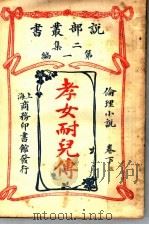 說部叢書
二集
第一編
倫理小說
卷下
孝女耐兒傳
上海
商務印書館發行